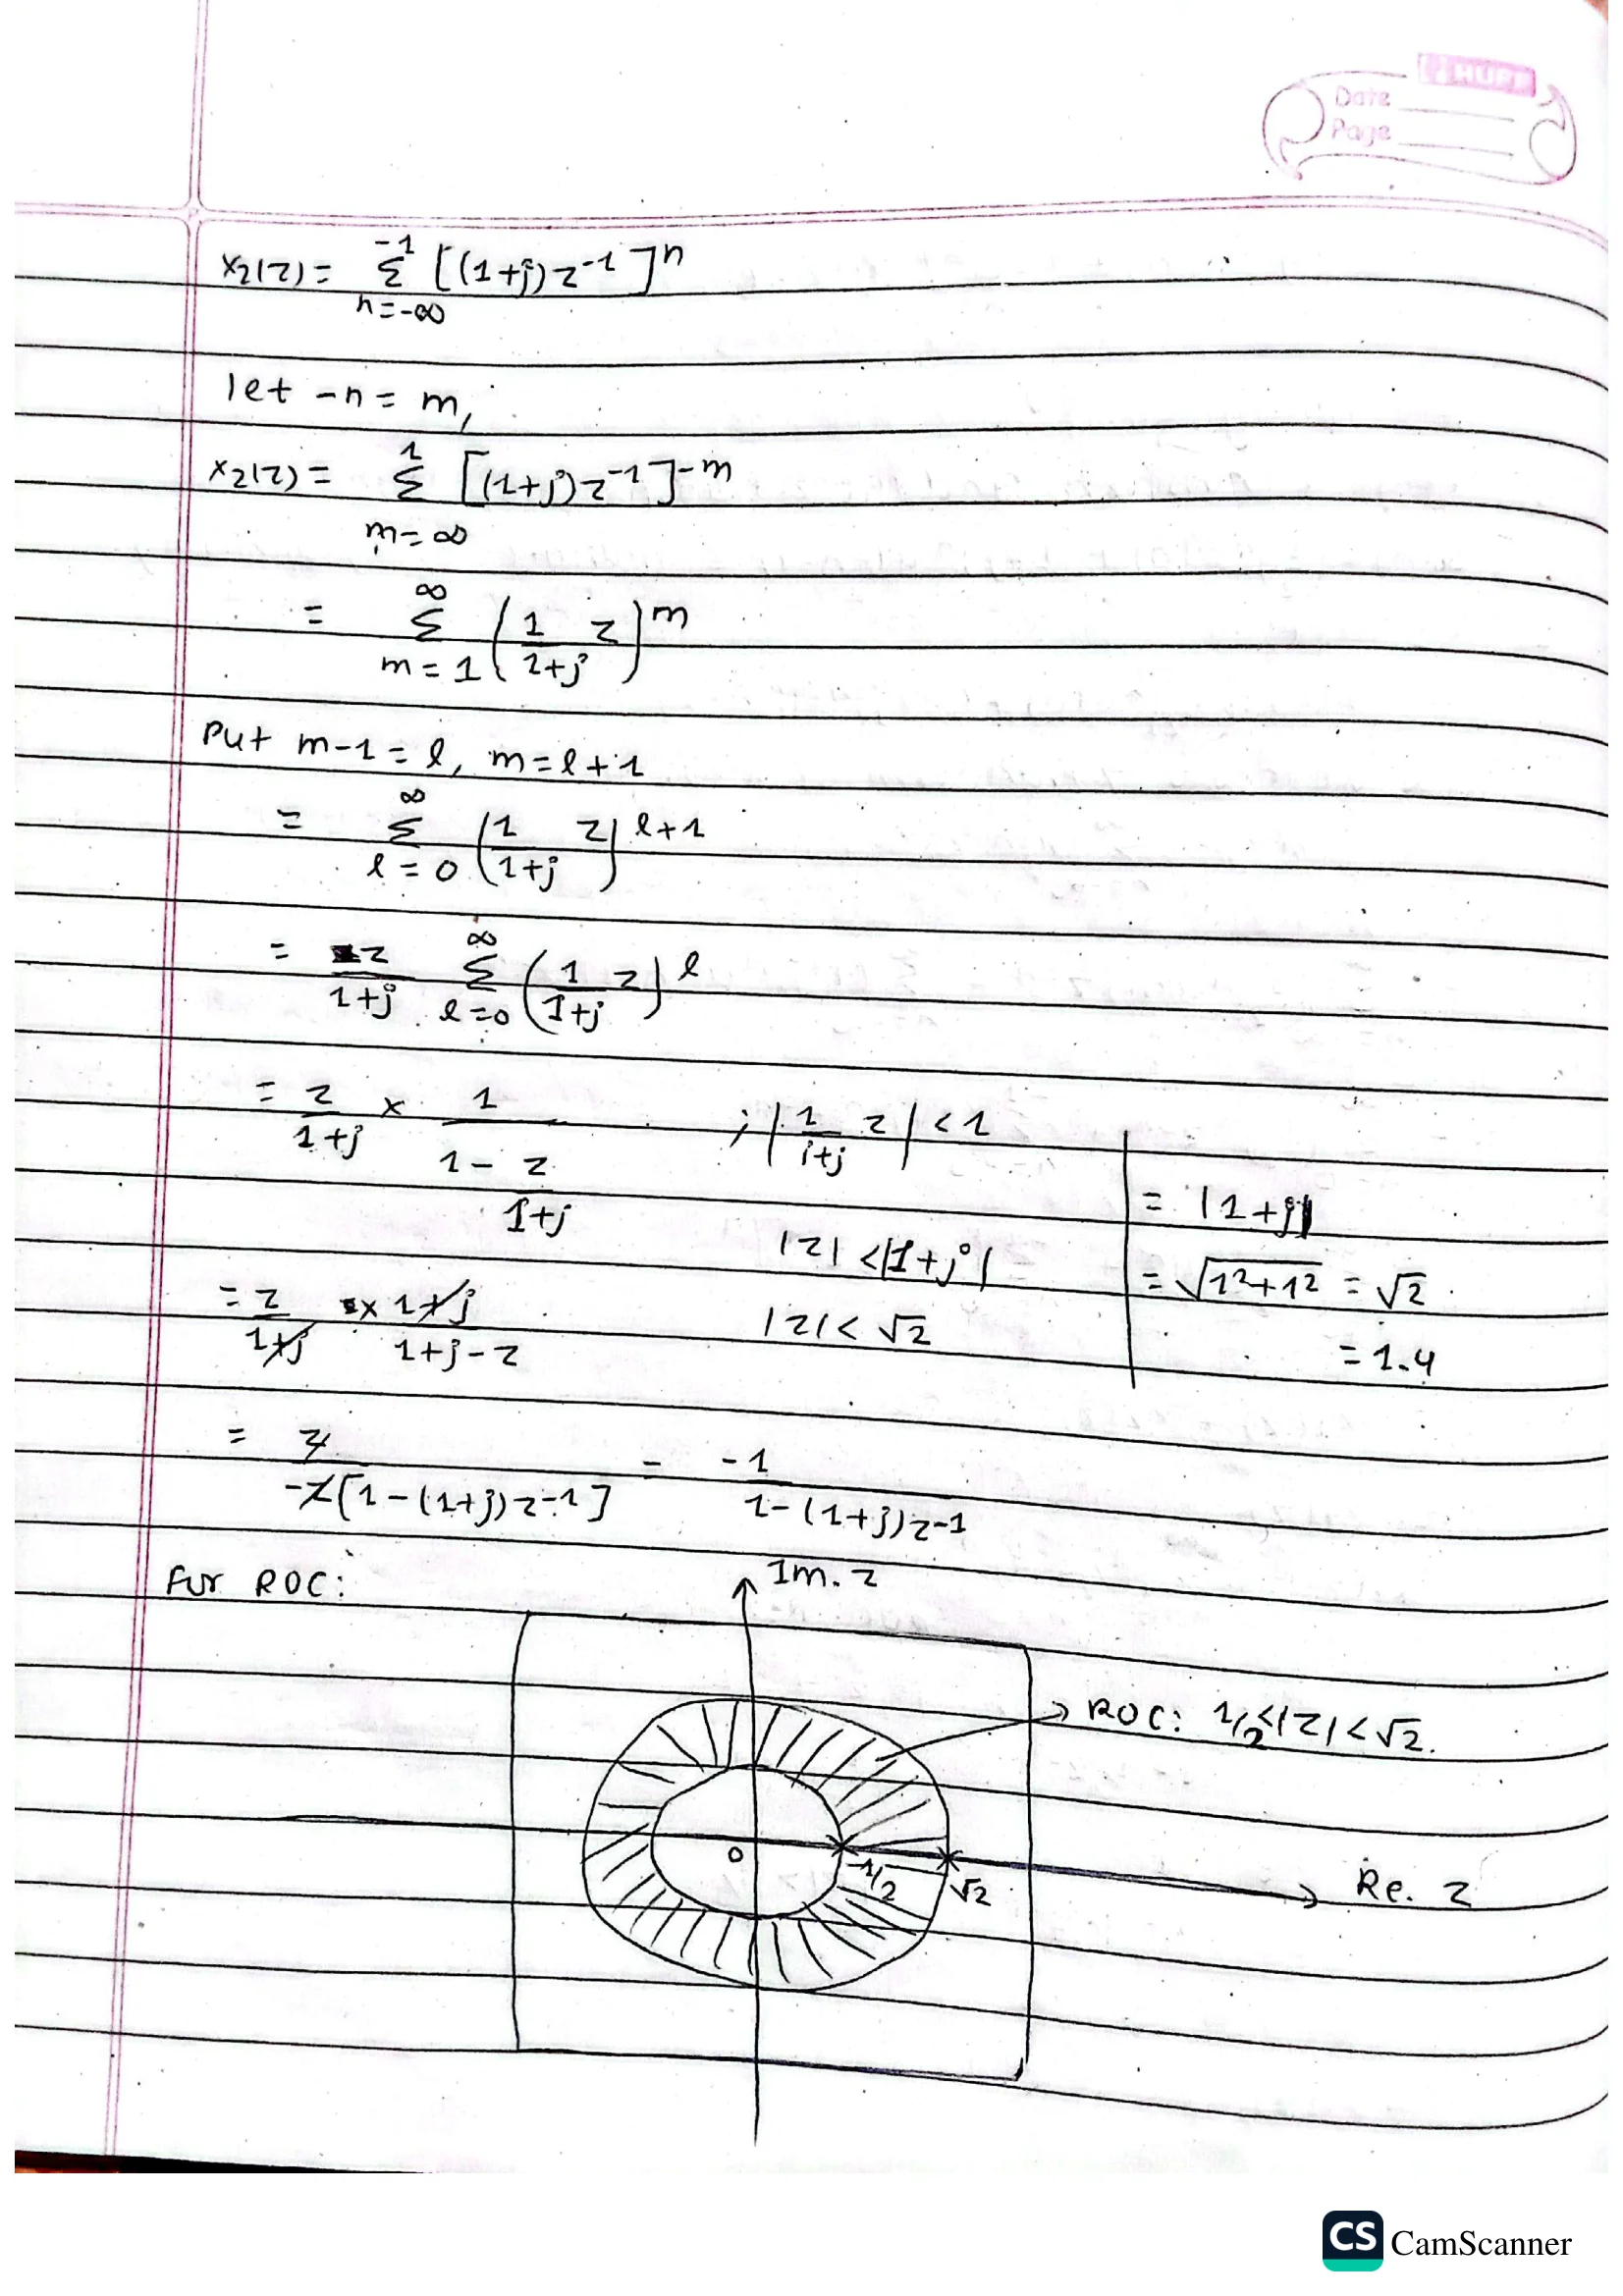 Date
Page
x2(z) = -1 Σ n=-∞ [(1+j)z^-1]^n
let -n = m,
x2(z) = 1 Σ m=∞ [(1+j)z^-1]^-m
= ∞ Σ m=1 (1/1+j z)^m
Put m-1 = l, m = l+1
= ∞ Σ l=0 (1/1+j z)^l+1
= z/1+j ∞ Σ l=0 (1/1+j z)^l
= z/1+j × 1/(1 - z/1+j) ; |1/1+j z| < 1
|z| < |1+j|
= |1+j|
= z/1+j × 1+j/1+j-z
|z| < √2
= √1²+1² = √2
= 1.4
= z/-z[1-(1+j)z^-1] = -1/1-(1+j)z^-1
For ROC:
Im. z
ROC: 1/2<|z|<√2.
0
1/2
√2
Re. z
CS CamScanner